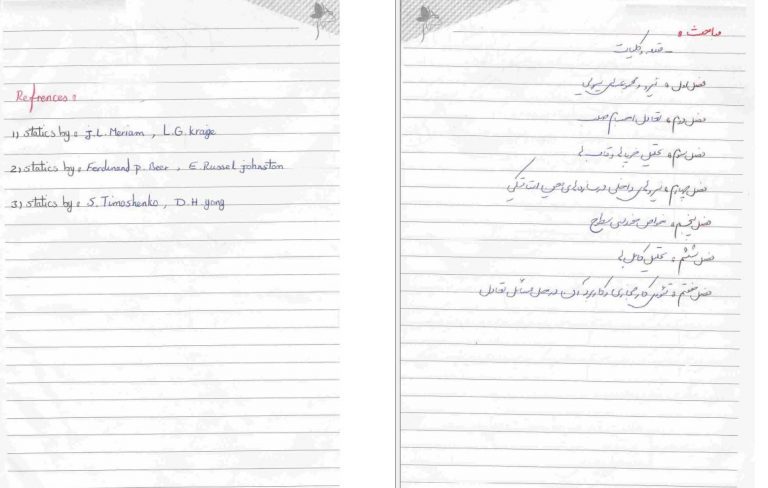 Refrences :
1) statics by : J.L. Meriam , L.G. kraige
2) statics by : Ferdinand p. Beer , E. Russel johnston
3) statics by : S. Timoshenko , D.H. yong
مباحث :
ـ مقدمه و کلیات
فصل اول : نیرو و مجموعه‌های نیرویی
فصل دوم : تعادل اجسام صلب
فصل سوم : تحلیل خرپاها و قاب‌ها
فصل چهارم : نیروهای داخلی در سازه‌های
فصل پنجم : خواص هندسی سطوح
فصل ششم : تحلیل کابل‌ها
فصل هفتم : تئوری کار مجازی و کاربرد آن در حل مسائل تعادل